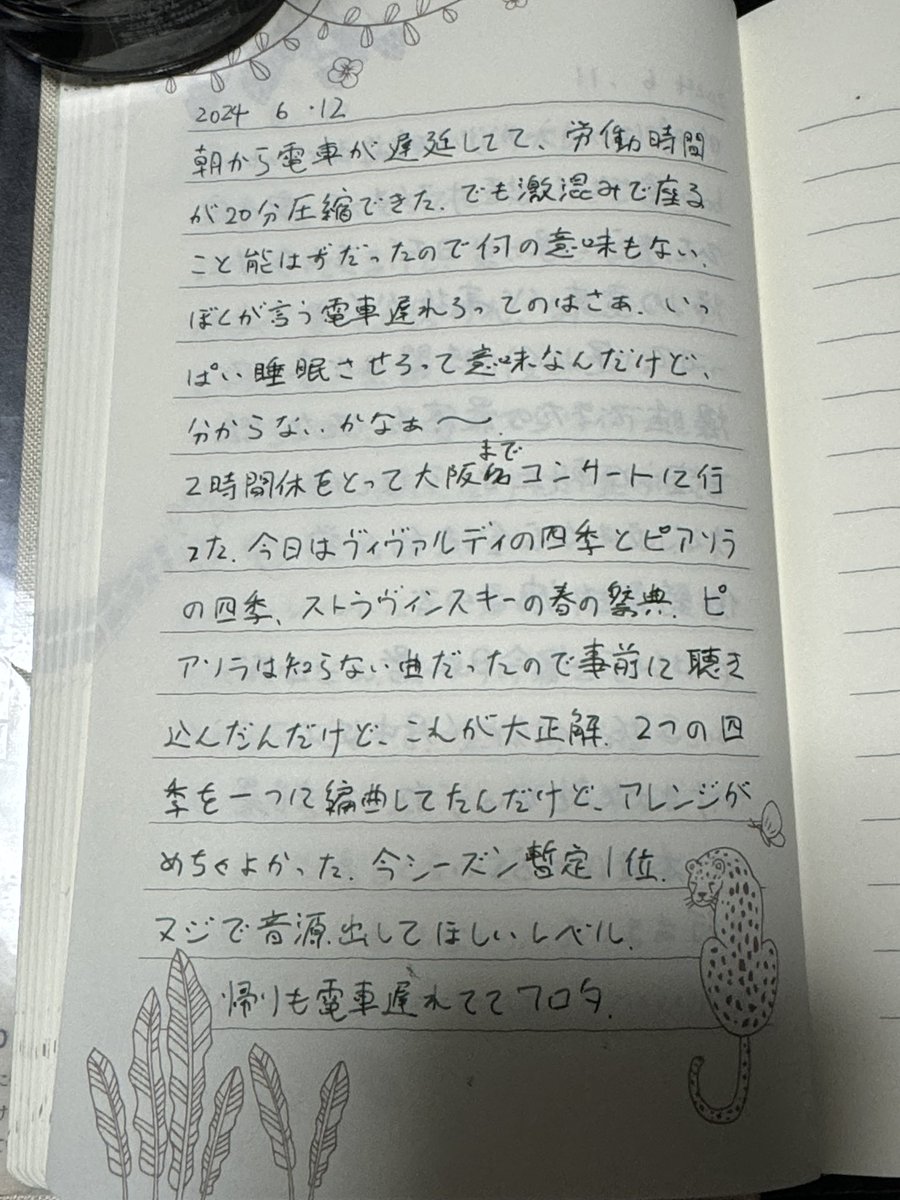 2024 6.12
朝から電車が遅延してて、労働時間
が20分圧縮できた.でも激混みで座る
こと能はずだったので何の意味もない.
ぼくが言う電車遅れろってのはさぁ.いっ
ぱい睡眠させろって意味なんだけど、
分からないかなぁ〜.
まで
2時間休をとって大阪コンサートに行
った.今日はヴィヴァルディの四季とピアソラ
の四季、ストラヴィンスキーの春の祭典.ピ
アソラは知らない曲だったので事前に聴き
込んだんだけど、これが大正解.2つの四
季を一つに編曲してたんだけど、アレンジが
めちゃよかった.今シーズン暫定1位.
マジで音源出してほしいレベル.
帰りも電車遅れててワロタ.